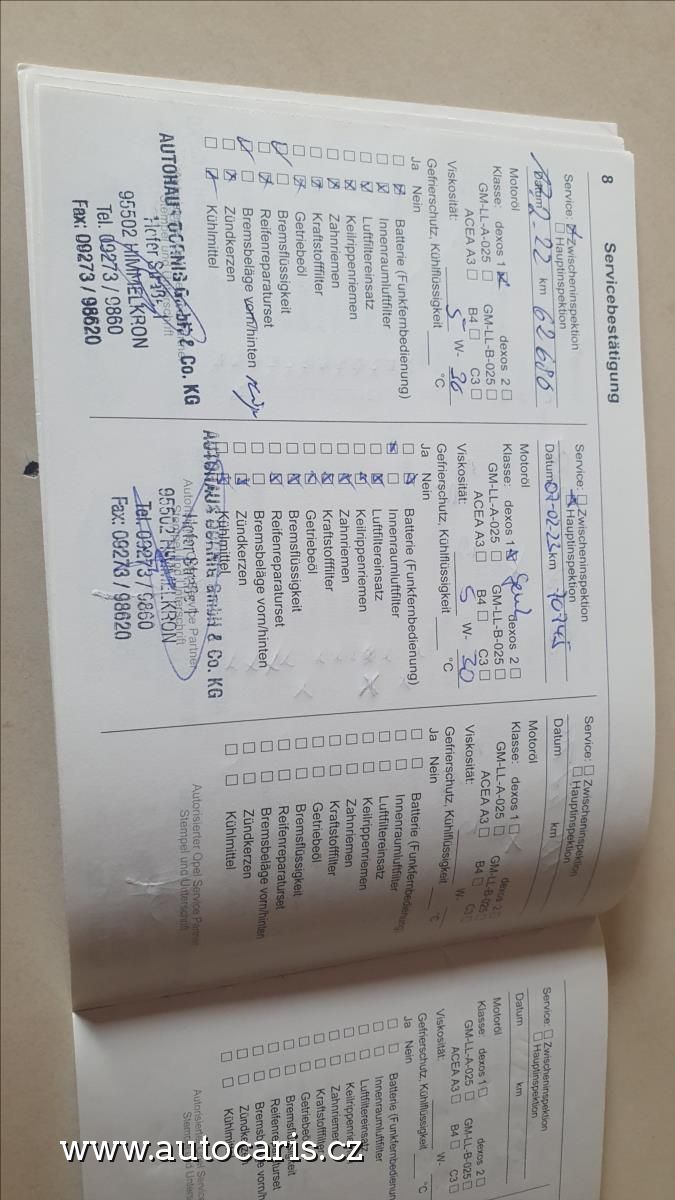 8
Servicebestätigung
Service: Zwischeninspektion
Hauptinspektion
Datum 2-22 km 62686
Motoröl
Klasse: dexos 1 dexos 2
GM-LL-A-025 GM-LL-B-025
ACEA A3 B4 C3
Viskosität: 5 W- 30
Gefrierschutz, Kühlflüssigkeit °C
Ja Nein
Batterie (Funkfernbedienung)
Innenraumluftfilter
Luftfiltereinsatz
Keilrippenriemen
Zahnriemen
Kraftstofffilter
Getriebeöl
Bremsflüssigkeit
Reifenreparaturset
Bremsbeläge vorn/hinten
Zündkerzen
Kühlmittel
AUTOHAUS DOENIG GmbH & Co. KG
95502 HIMMELKRON
Tel. 09273 / 9860
Fax: 09273 / 98620
Service: Zwischeninspektion
Hauptinspektion
Datum 07-02-23 km 70745
Motoröl
Klasse: dexos 1 dexos 2
GM-LL-A-025 GM-LL-B-025
ACEA A3 B4 C3
Viskosität: 5 W- 30
Gefrierschutz, Kühlflüssigkeit °C
Ja Nein
Batterie (Funkfernbedienung)
Innenraumluftfilter
Luftfiltereinsatz
Keilrippenriemen
Zahnriemen
Kraftstofffilter
Getriebeöl
Bremsflüssigkeit
Reifenreparaturset
Bremsbeläge vorn/hinten
Zündkerzen
Kühlmittel
AUTOHAUS DOENIG GmbH & Co. KG
95502 HIMMELKRON
Tel. 09273 / 9860
Fax: 09273 / 98620
Service: Zwischeninspektion
Hauptinspektion
Datum km
Motoröl
Klasse: dexos 1 dexos 2
GM-LL-A-025 GM-LL-B-025
ACEA A3 B4 C3
Viskosität: W-
Gefrierschutz, Kühlflüssigkeit °C
Ja Nein
Batterie (Funkfernbedienung)
Innenraumluftfilter
Luftfiltereinsatz
Keilrippenriemen
Zahnriemen
Kraftstofffilter
Getriebeöl
Bremsflüssigkeit
Reifenreparaturset
Bremsbeläge vorn/hinten
Zündkerzen
Kühlmittel
Autorisierter Opel Service Partner
Stempel und Unterschrift
Service: Zwischeninspektion
Hauptinspektion
Datum km
Motoröl
Klasse: dexos 1 dexos 2
GM-LL-A-025 GM-LL-B-025
ACEA A3 B4 C3
Viskosität: W-
Gefrierschutz, Kühlflüssigkeit °C
Ja Nein
Batterie (Funkfernbedienun
Innenraumluftfilter
Luftfiltereinsatz
Keilrippenriemen
Zahnriemen
Kraftstofffilter
Getriebeöl
Bremsflüssigkeit
Reifenreparaturset
Bremsbeläge vorn/h
Zündkerzen
Kühlmittel
Autorisierter Opel Servic
Stempel und Unters
www.autocaris.cz